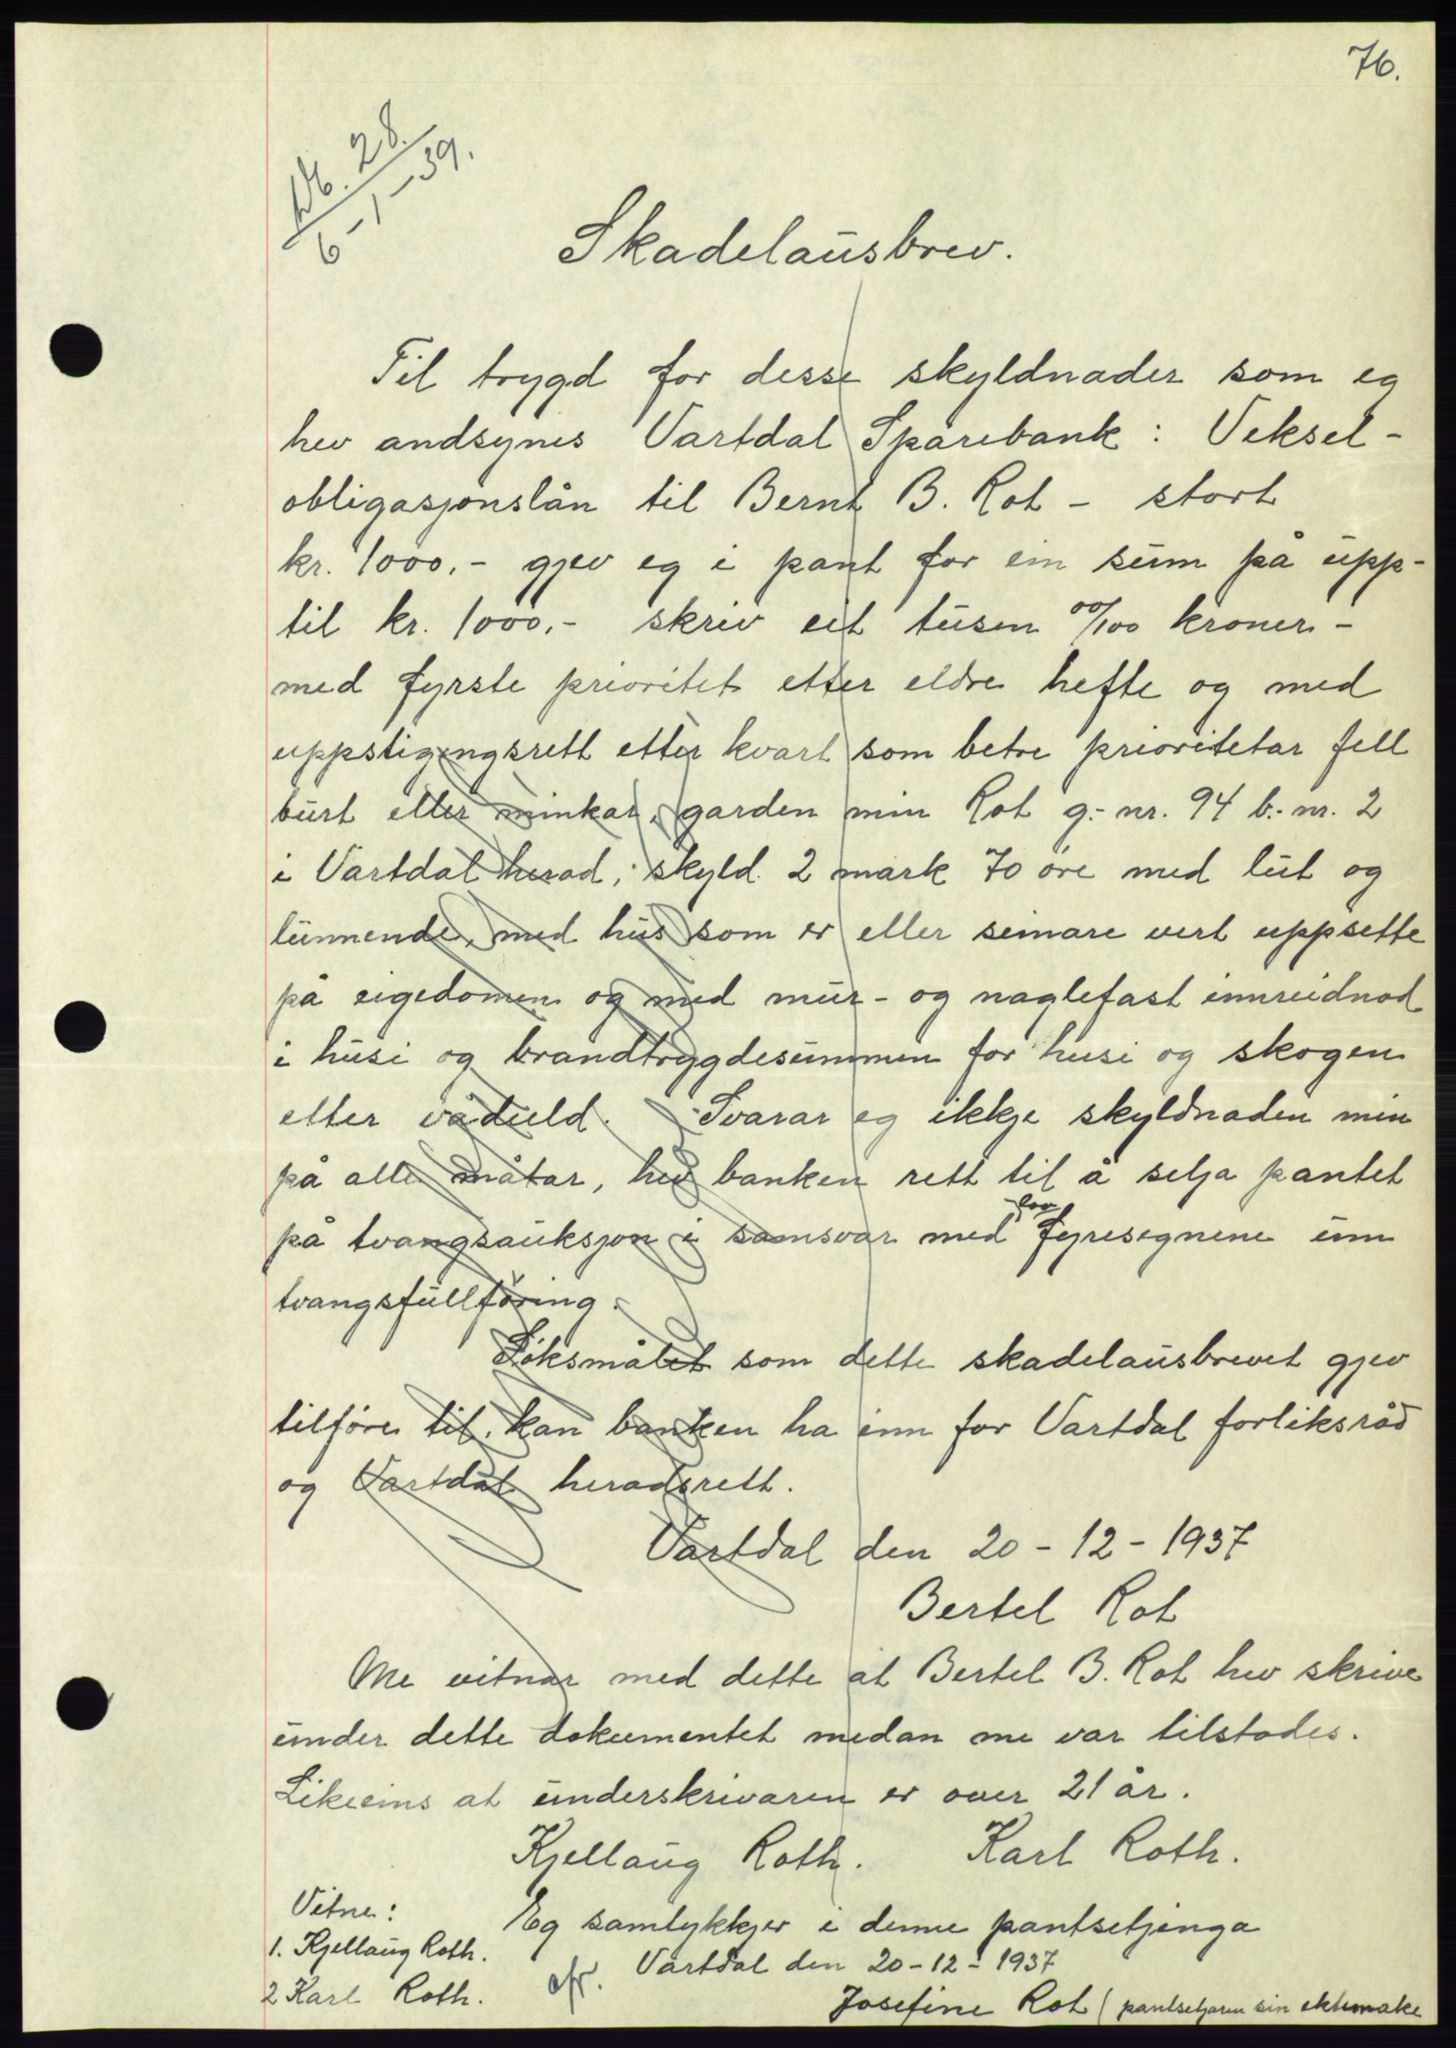 76.
Nr. 28.
6-1-39.
Skadelausbrev.
Til trygd for desse skyldnader som eg
hev andsynes Vartdal Sparebank: Veksel-
obligasjonslån til Bernt B. Rot - stort
kr. 1000.- gjev eg i pant for ein sum på upp-
til kr. 1000.- skriv eit tusen 00/100 kroner -
med fyrste prioritet etter eldre hefte og med
uppstigingsrett etter kvart som betre prioritetar fell
burt eller minkar, garden min Rot g.- nr. 94 b.- nr. 2
i Vartdal herad, skyld 2 mark 70 öre med lut og
lunnende, med hus som er eller seinare vert uppsette
på eigedomen og med mur- og naglefast innreidnad
i husi og brandtrygdesummen for husi og skogen
etter vådeeld. Svarar eg ikkje skyldnaden min
på alle måtar, hev banken rett til å selja pantet
på tvangsauksjon i samsvar med lov fyresegnene um
tvangsfullföring.
Söksmålet som dette skadelausbrevet gjev
tilföre til, kan banken ha inn for Vartdal forliksråd
og Vartdal heradsrett.
Vartdal den 20-12-1937
Bertel Rot
Me vitnar med dette at Bertel B. Rot hev skrive
under dette dokumentet medan me var tilstades.
Likeeins at underskrivaren er over 21 år.
Kjellaug Roth. Karl Roth.
Vitne:
1. Kjellaug Roth.
2 Karl Roth.
Eg samtykkjer i denne pantsetjinga
Vartdal den 20-12-1937
Josefine Rot (pantsetjaren sin ektemake